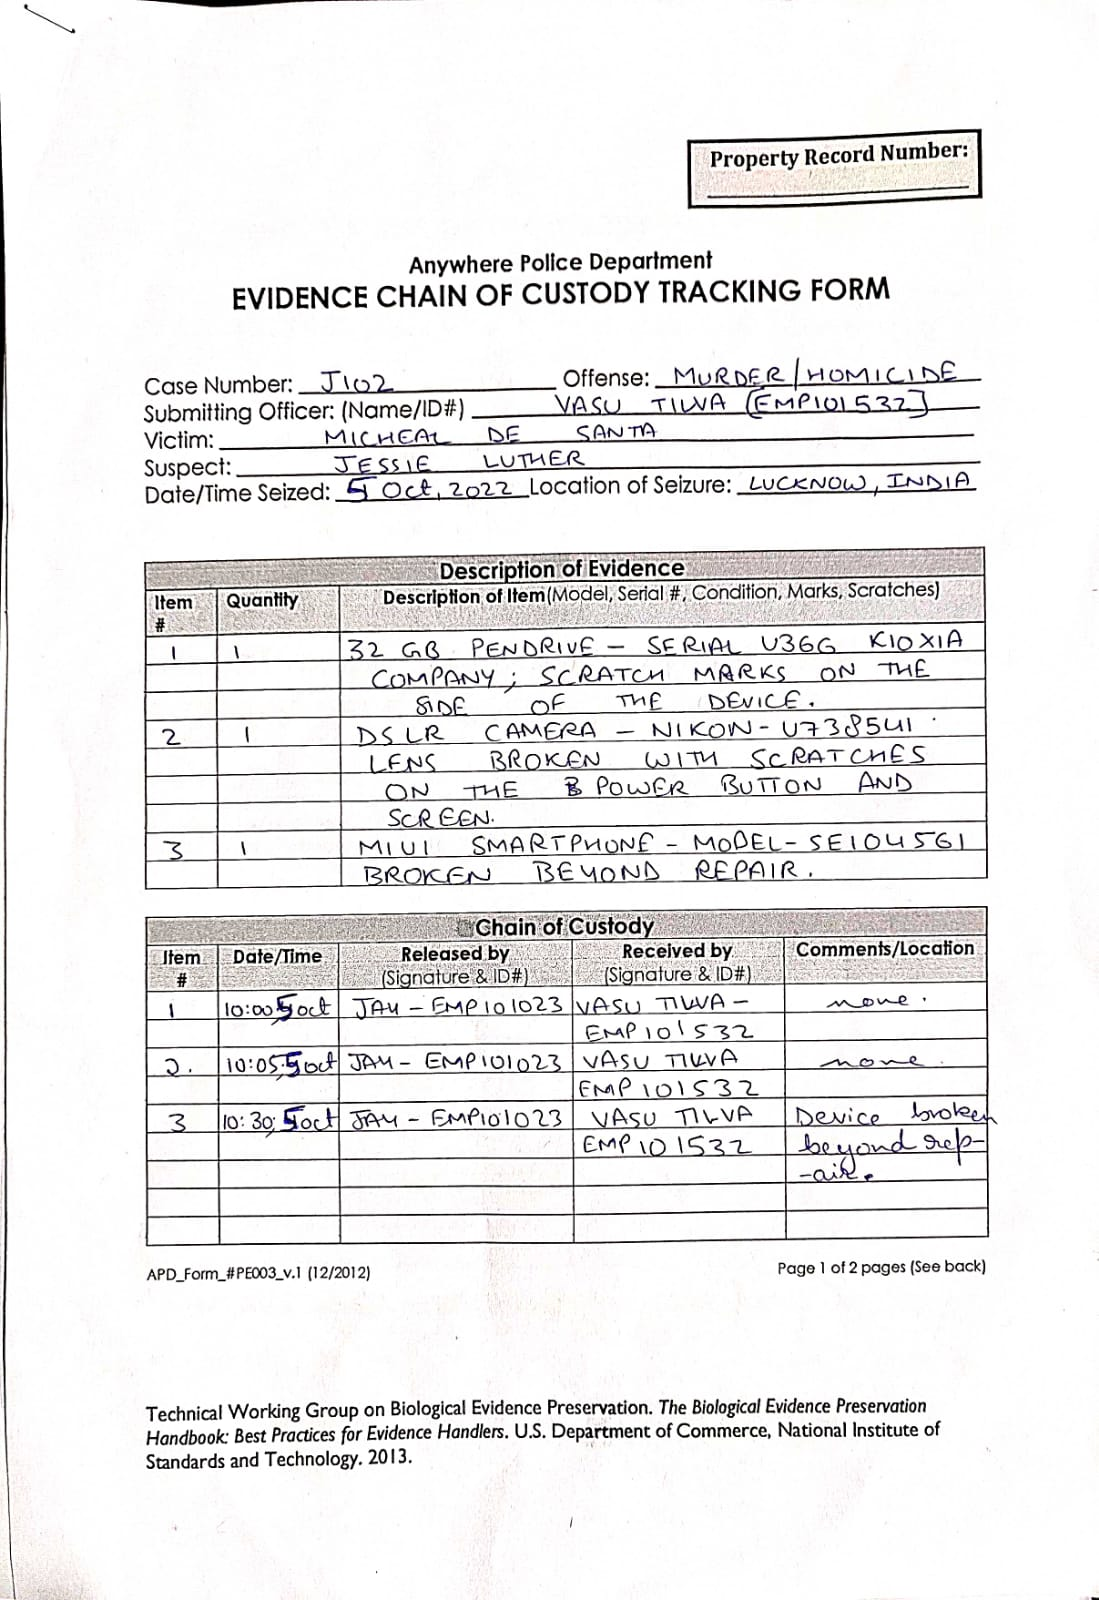 Property Record Number:
Anywhere Police Department
EVIDENCE CHAIN OF CUSTODY TRACKING FORM
Case Number: J102 Offense: MURDER/HOMICIDE
Submitting Officer: (Name/ID#) VASU TILVA (EMP101532)
Victim: MICHEAL DE SANTA
Suspect: JESSIE LUTHER
Date/Time Seized: 5 Oct, 2022 Location of Seizure: LUCKNOW, INDIA
Description of Evidence
Item # Quantity Description of Item (Model, Serial #, Condition, Marks, Scratches)
1 1 32 GB PENDRIVE - SERIAL U36G KIOXIA
COMPANY; SCRATCH MARKS ON THE
SIDE OF THE DEVICE.
2 1 DSLR CAMERA - NIKON - U738541
LENS BROKEN WITH SCRATCHES
ON THE POWER BUTTON AND
SCREEN.
3 1 MIUI SMARTPHONE - MODEL - SE104561
BROKEN BEYOND REPAIR.
Chain of Custody
Item # Date/Time Released by (Signature & ID#) Received by (Signature & ID#) Comments/Location
1 10:00 5 oct JAY - EMP101023 VASU TILVA - none.
EMP101532
2. 10:05 5 oct JAY - EMP101023 VASU TILVA none.
EMP101532
3 10:30; 5 oct JAY - EMP101023 VASU TILVA Device broken
EMP101532 beyond rep-
-air.
APD_Form_#PE003_v.1 (12/2012) Page 1 of 2 pages (See back)
Technical Working Group on Biological Evidence Preservation. The Biological Evidence Preservation
Handbook: Best Practices for Evidence Handlers. U.S. Department of Commerce, National Institute of
Standards and Technology. 2013.